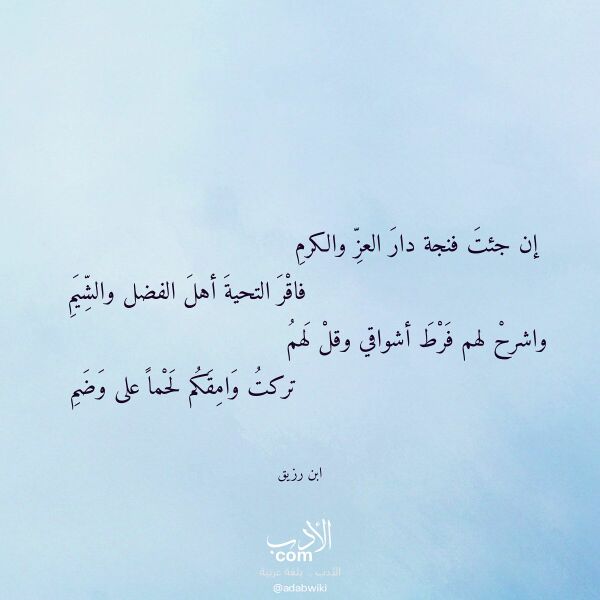 إن جئتَ فنجة دارَ العزِّ والكرمِ
فاقْرَ التحيةَ أهلَ الفضل والشِّيَمِ
واشرحْ لهم فَرْطَ أشواقي وقلْ لَهمُ
تركتُ وَامِقَكُم لَحْماً على وَضَمِ
ابن رزيق
الأدب
com
الأدب .. بلغة عربية
@adabwiki